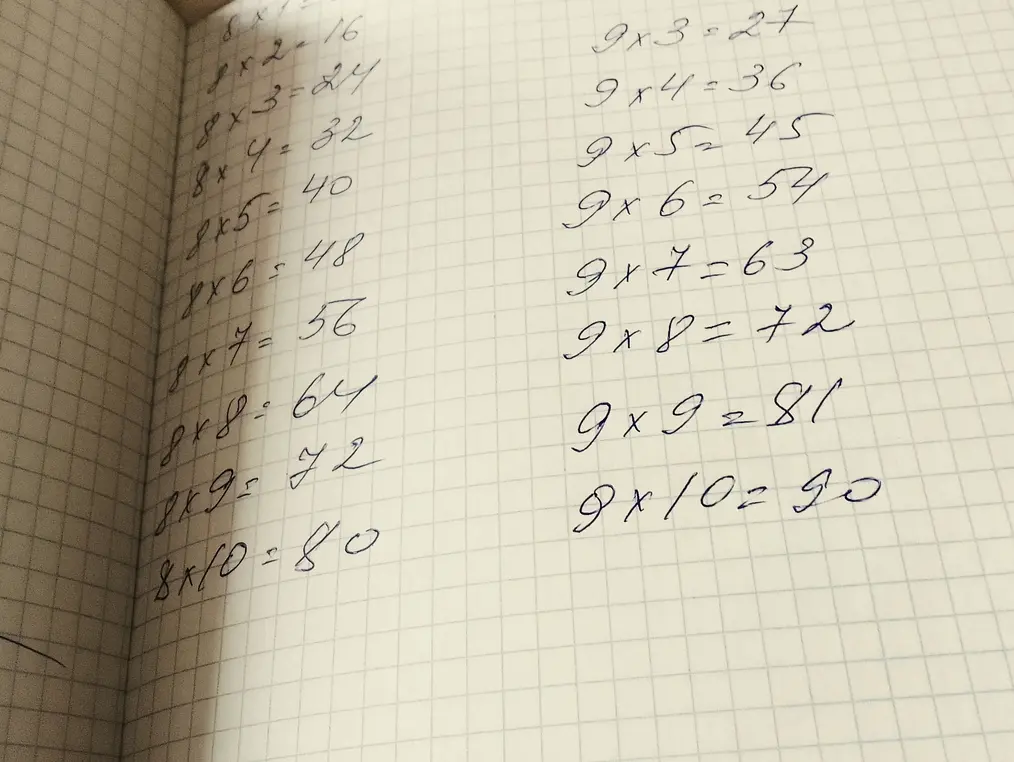 8 x 1 =
8 x 2 = 16
8 x 3 = 24
8 x 4 = 32
8 x 5 = 40
8 x 6 = 48
8 x 7 = 56
8 x 8 = 64
8 x 9 = 72
8 x 10 = 80
9 x 3 = 27
9 x 4 = 36
9 x 5 = 45
9 x 6 = 54
9 x 7 = 63
9 x 8 = 72
9 x 9 = 81
9 x 10 = 90